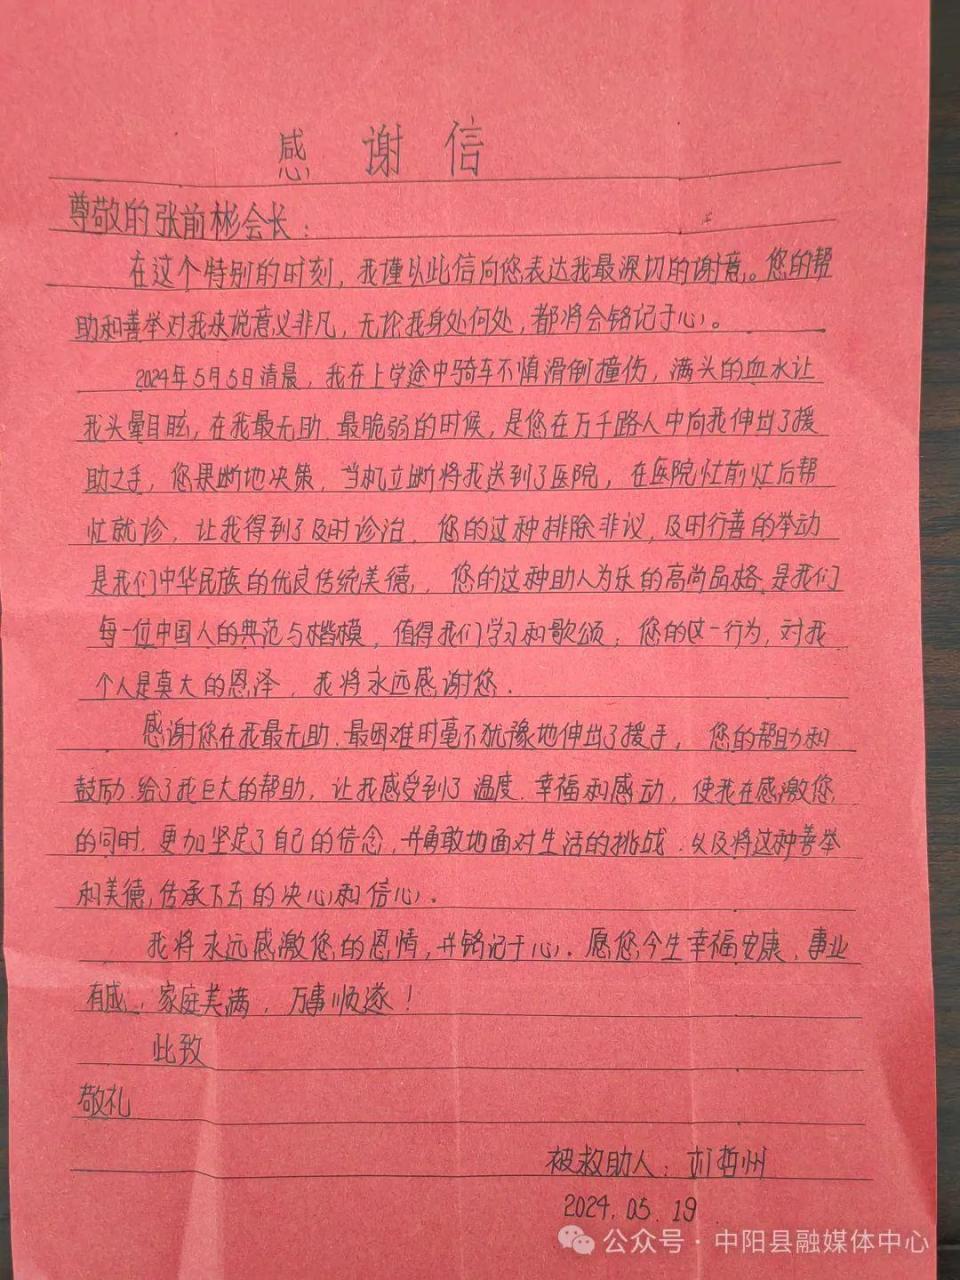 感谢信
尊敬的张前彬会长：
在这个特别的时刻，我谨以此信向您表达我最深切的谢意。您的帮
助和善举对我来说意义非凡，无论我身处何处，都将会铭记于心。
2024年5月5日清晨，我在上学途中骑车不慎滑倒撞伤，满头的血水让
我头晕目眩，在我最无助、最脆弱的时候，是您在万千路人中向我伸出了援
助之手，您果断地决策，当机立断将我送到了医院，在医院忙前忙后帮
忙就诊，让我得到了及时诊治，您的这种排除非议，及时行善的举动
是我们中华民族的优良传统美德，您的这种助人为乐的高尚品格，是我们
每一位中国人的典范与楷模，值得我们学习和歌颂，您的这一行为，对我
个人是莫大的恩泽，我将永远感谢您.
感谢您在我最无助、最困难时毫不犹豫地伸出了援手，您的帮助和
鼓励，给了我巨大的帮助，让我感受到了温度、幸福和感动，使我在感激您
的同时，更加坚定了自己的信念，并勇敢地面对生活的挑战，以及将这种善举
和美德，传承下去的决心和信心.
我将永远感激您的恩情，并铭记于心.愿您今生幸福安康、事业
有成，家庭美满，万事顺遂！
此致
敬礼
被救助人：哲州
2024.05.19
公众号·中阳县融媒体中心